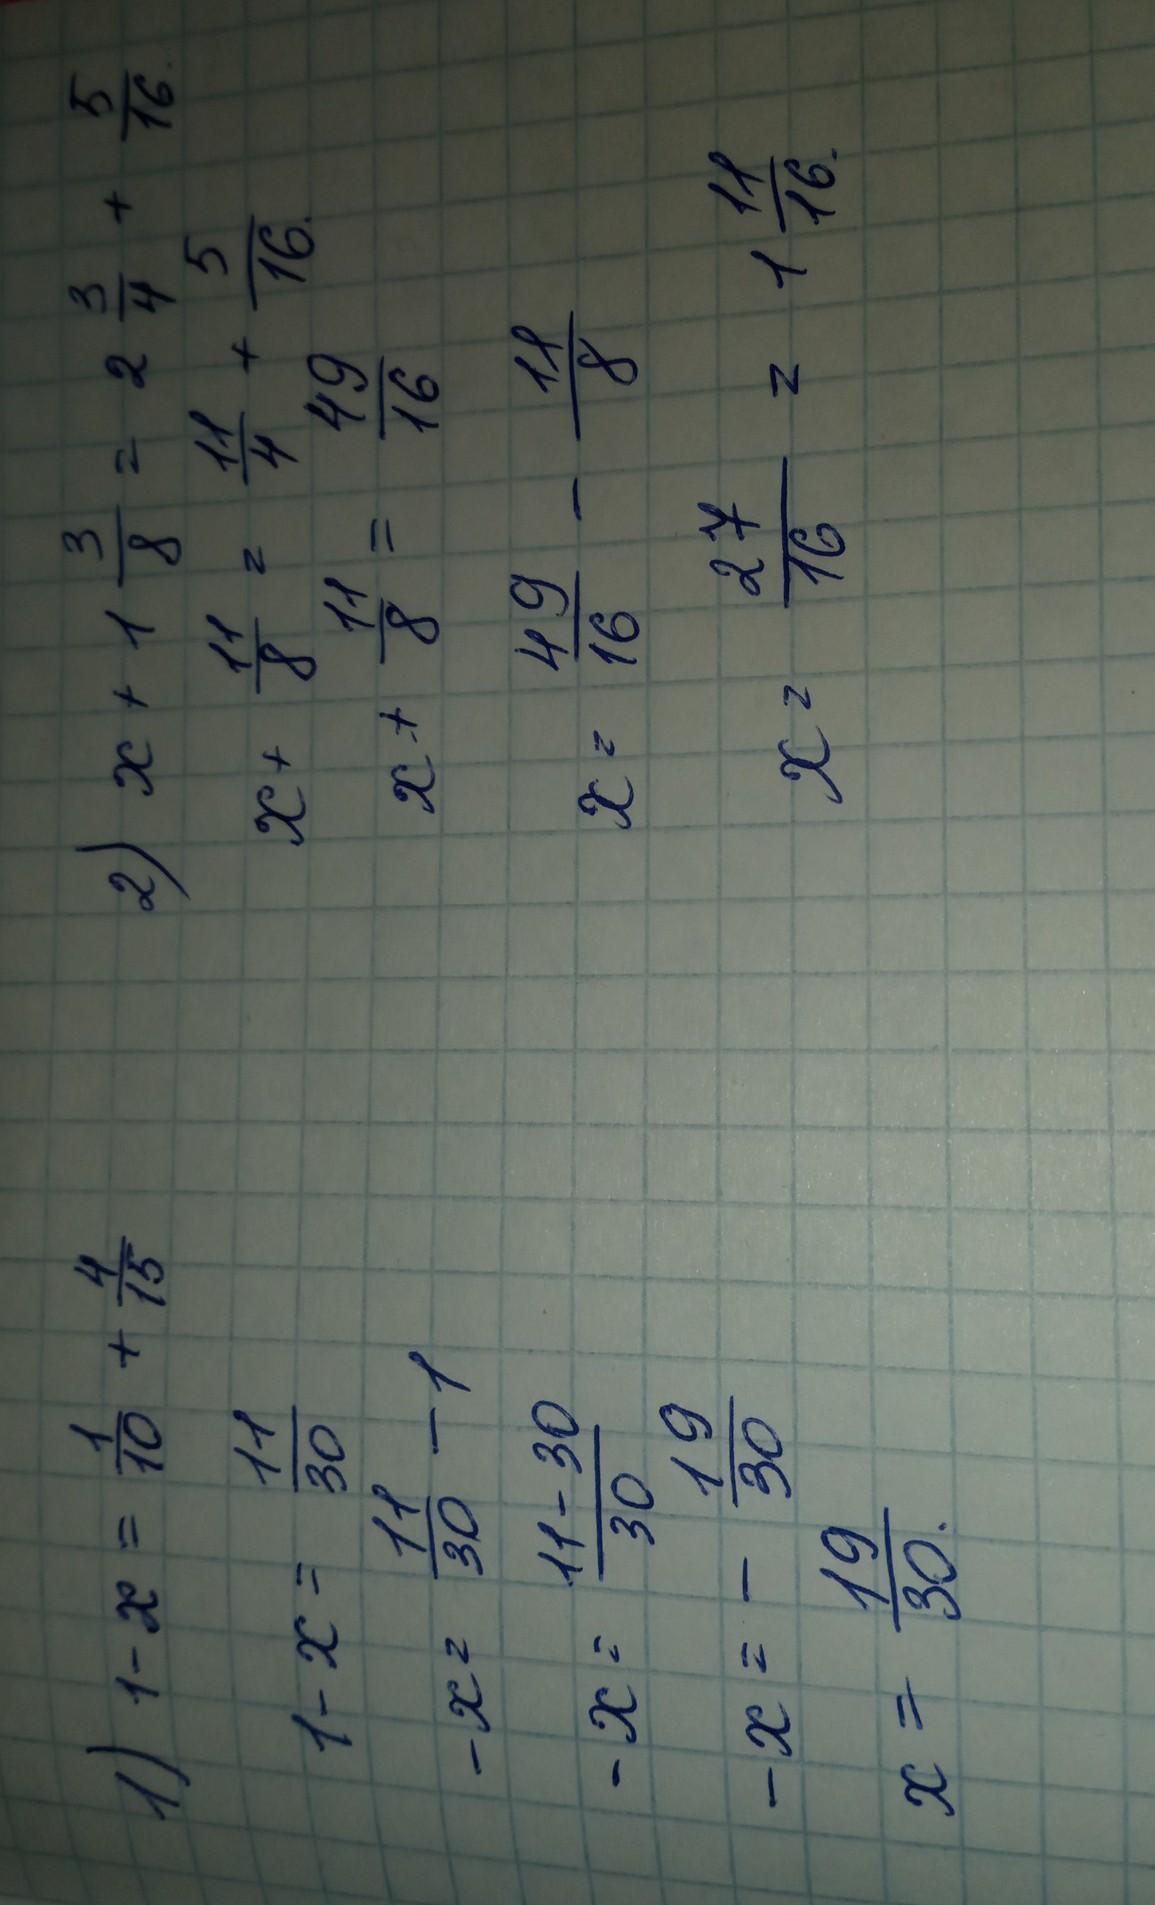 1) 1 - x = 1/10 + 4/15
1 - x = 11/30
-x = 11/30 - 1
-x = 11-30/30
-x = - 19/30
x = 19/30.
2) x + 1 3/8 = 2 3/4 + 5/16.
x + 11/8 = 11/4 + 5/16.
x + 11/8 = 49/16
x = 49/16 - 11/8
x = 27/16 = 1 11/16.